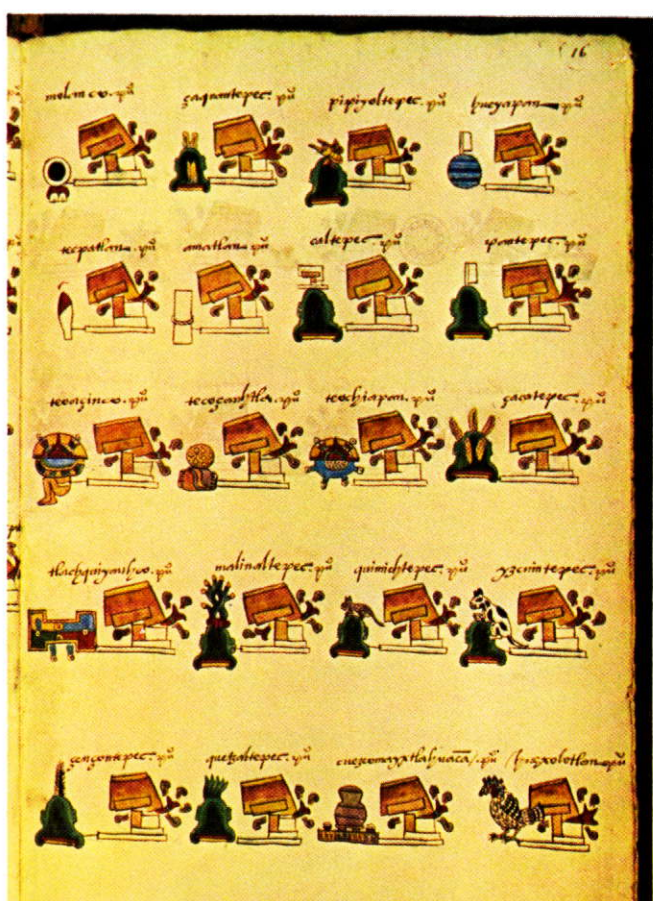 16
molanco. pũ çaquantepec. pũ pipiyoltepec. pũ hueyapan pũ
tecpatlan. pũ amatlan. pũ caltepec. pũ pantepec. pũ
teoaçinco. pũ tecoçauhtla. pũ teochiapan. pũ çacatepec. pũ
tlachquiyauhco. pũ malinaltepec. pũ quimichtepec. pũ yzcuintepec. pũ
çençontepec. pũ quetzaltepec. pũ cuezcomayxtlahuacã / pũ huexolotlan pũ